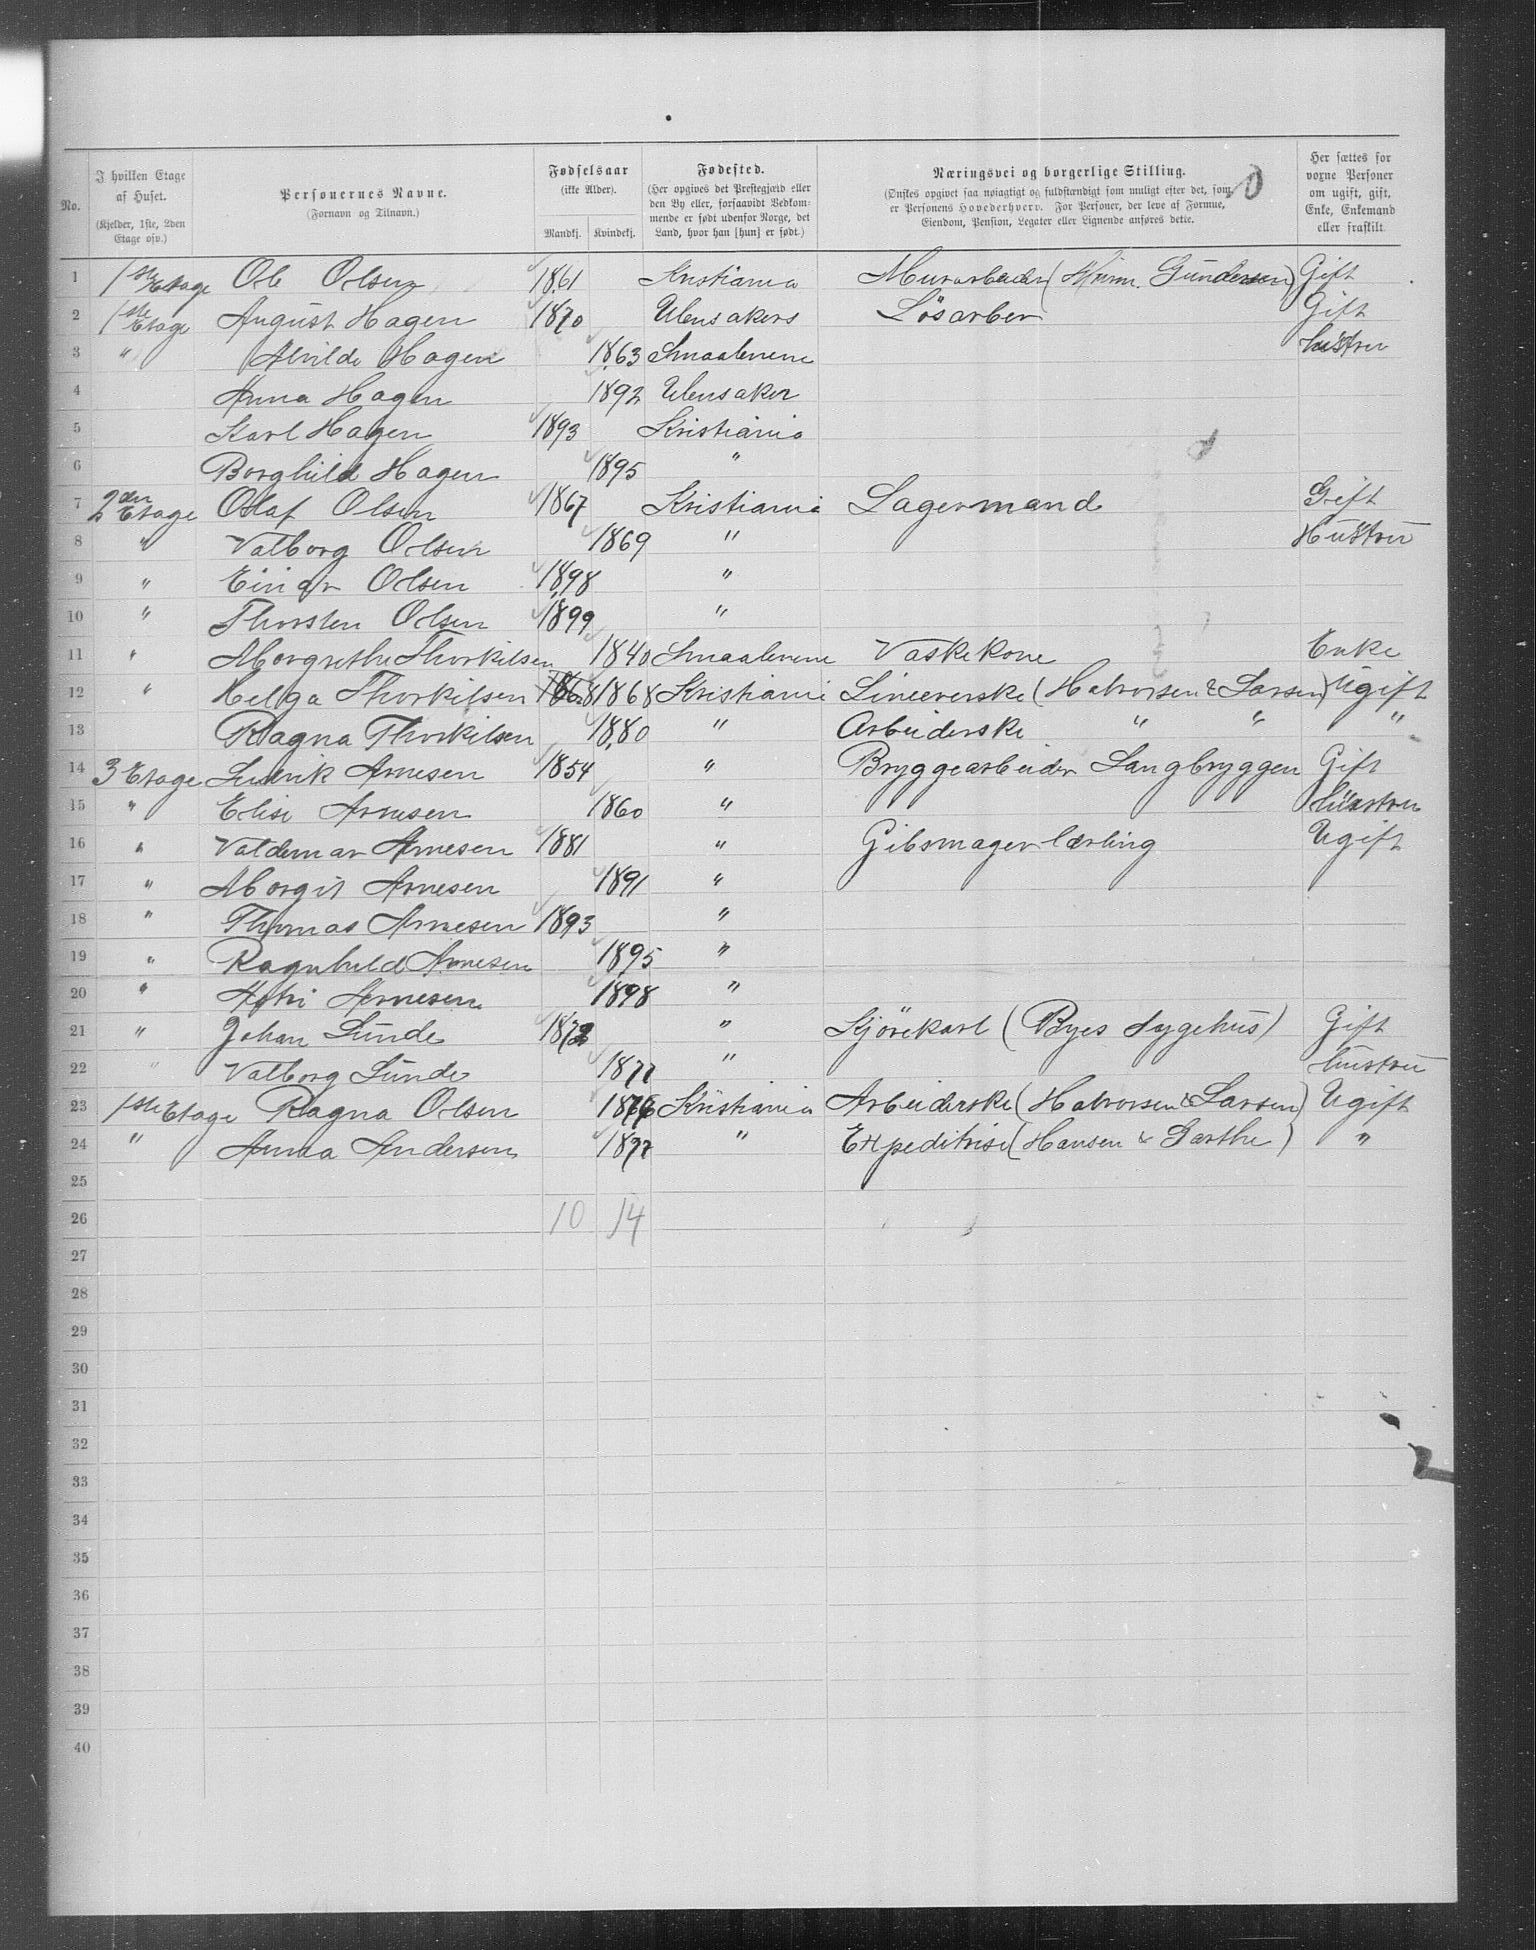 No.
I hvilken Etage af Huset. (Kjelder, 1ste, 2den Etage osv.)
Personernes Navne. (Fornavn og Tilnavn.)
Fødselsaar (ikke Alder). Mandkj. Kvindekj.
Fødested. (Her opgives det Prestegjæld eller den By eller, forsaavidt Vedkommende er født udenfor Norge, det Land, hvor han [hun] er født.)
Næringsvei og borgerlige Stilling. (Ønskes opgivet saa nøiagtigt og fuldstændigt som muligt efter det, som er Personens Hovederhverv. For Personer, der leve af Formue, Eiendom, Pension, Legater eller Lignende anføres dette.
Her sættes for voxne Personer om ugift, gift, Enke, Enkemand eller fraskilt.
1 1ste Etage Ole Olsen 1861 Kristiania Murarbeider (Gundersen) Gift
2 1ste Etage August Hagen 1870 Ulensakers Lösarber Gift
3 " Alvilde Hagen 1863 Smaalenene Hustru
4 Anna Hagen 1892 Ulensaker
5 Karl Hagen 1893 Kristiania
6 Borghild Hagen 1895 "
7 2den Etage Olaf Olsen 1867 Kristiania Lagermand Gift
8 " Valborg Olsen 1869 " Hustru
9 " Einar Olsen 1898 "
10 " Thorsten Olsen 1899 "
11 " Margrethe Thorkilsen 1840 Smaalenene Vaskekone Enke
12 " Helga Thorkilsen 1868 1868 Kristiania Lineererske (Halvorsen & Larsen) Ugift
13 Ragna Thorkilsen 1880 " Arbeiderske " " "
14 3 Etage Ludvik Arnesen 1854 " Bryggearbeider Langbryggen Gift
15 " Elise Arnesen 1860 " Hustru
16 " Valdemar Arnesen 1881 " Gibsmager lærling Ugift
17 " Margit Arnesen 1891 "
18 " Thomas Arnesen 1893 "
19 " Ragnhild Arnesen 1895 "
20 " Arnesen 1898 "
21 " Johan Lunde 1872 " Kjörekarl (Byes Sygehus) Gift
22 " Valborg Lunde 1877 " Hustru
23 1ste Etage Ragna Olsen 1876 Kristiania Arbeiderske (Halvorsen & Larsen) Ugift
24 " Anna Andersen 1877 " Expeditrise (Hansen & Garthe) "
25
26 10 14
27
28
29
30
31
32
33
34
35
36
37
38
39
40